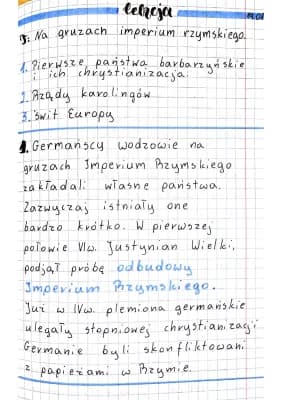 Lekcja
T: Na gruzach imperium rzymskiego.
1. Pierwsze państwa barbarzyńskie
i ich chrystianizacja.
2. Rządy karolingów
3. Świt Europy
1. Germańscy wodzowie na
gruzach Imperium Rzymskiego
zakładali własne państwa.
Zazwyczaj istniały one
bardzo krótko. W pierwszej
połowie VIw. Justynian Wielki,
podjął próbę odbudowy
Imperium Rzymskiego.
Już w IVw. plemiona germańskie
ulegały stopniowej chrystianizacji
Germanie byli skonfliktowani
z papieżami w Rzymie.